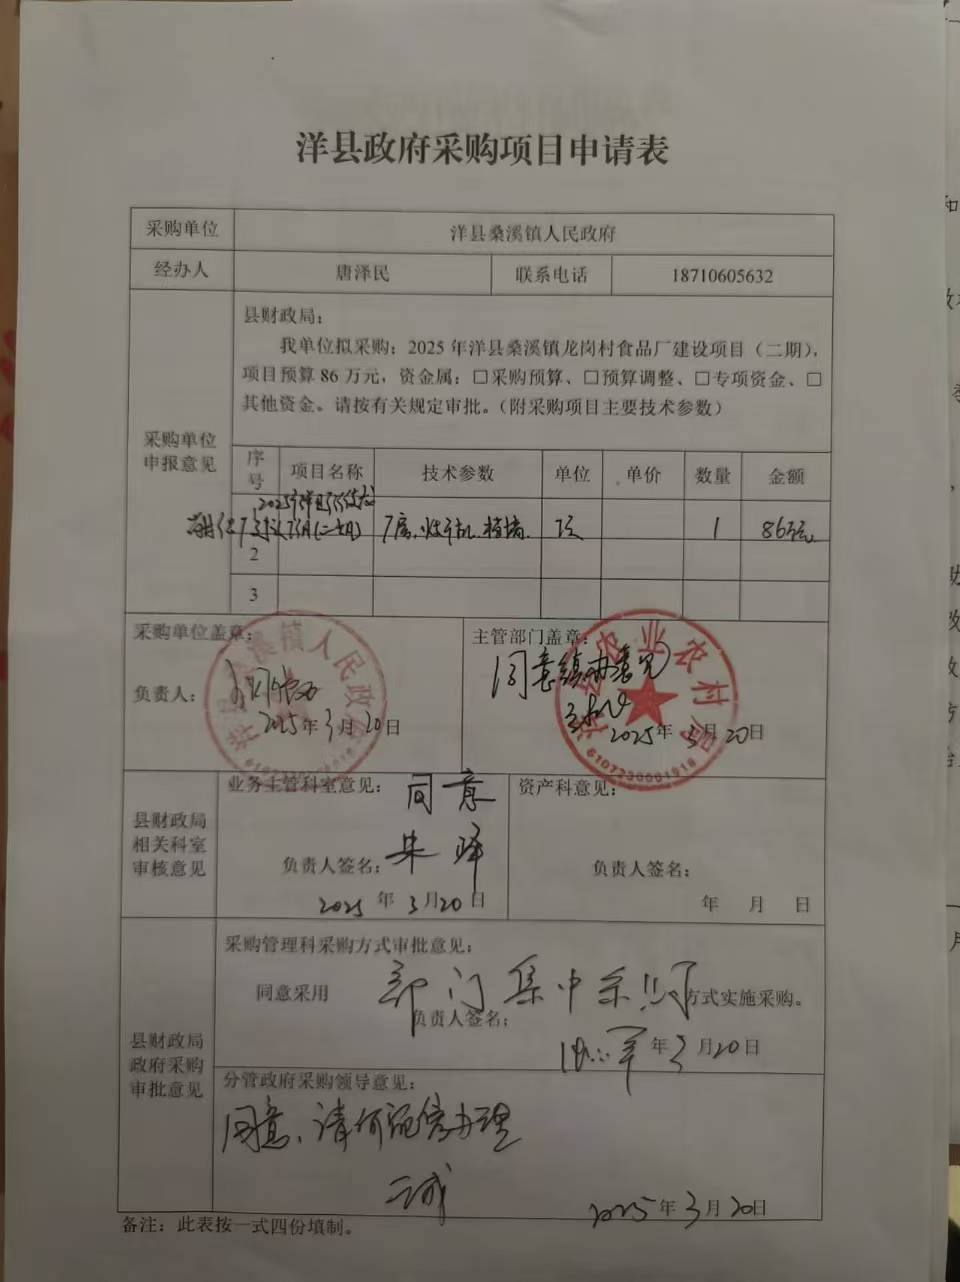 洋县政府采购项目申请表
采购单位 洋县桑溪镇人民政府
经办人 唐泽民 联系电话 18710605632
采购单位申报意见
县财政局：
我单位拟采购：2025年洋县桑溪镇龙岗村食品厂建设项目（二期），
项目预算86万元，资金属：□采购预算、□预算调整、□专项资金、□
其他资金。请按有关规定审批。（附采购项目主要技术参数）
序号 项目名称 技术参数 单位 单价 数量 金额
厂房、 1 86万元
2
3
采购单位盖章：
负责人：
2025年3月20日
主管部门盖章：
同意镇办意见
2025年3月20日
6107230001916
县财政局
相关科室
审核意见
业务主管科室意见： 同意
负责人签名：
2025年3月20日
资产科意见：
负责人签名：
年 月 日
县财政局
政府采购
审批意见
采购管理科采购方式审批意见：
同意采用 部门集中采购 方式实施采购。
负责人签名：
年3月20日
分管政府采购领导意见：
同意、请 办理
2025年3月20日
备注：此表按一式四份填制。